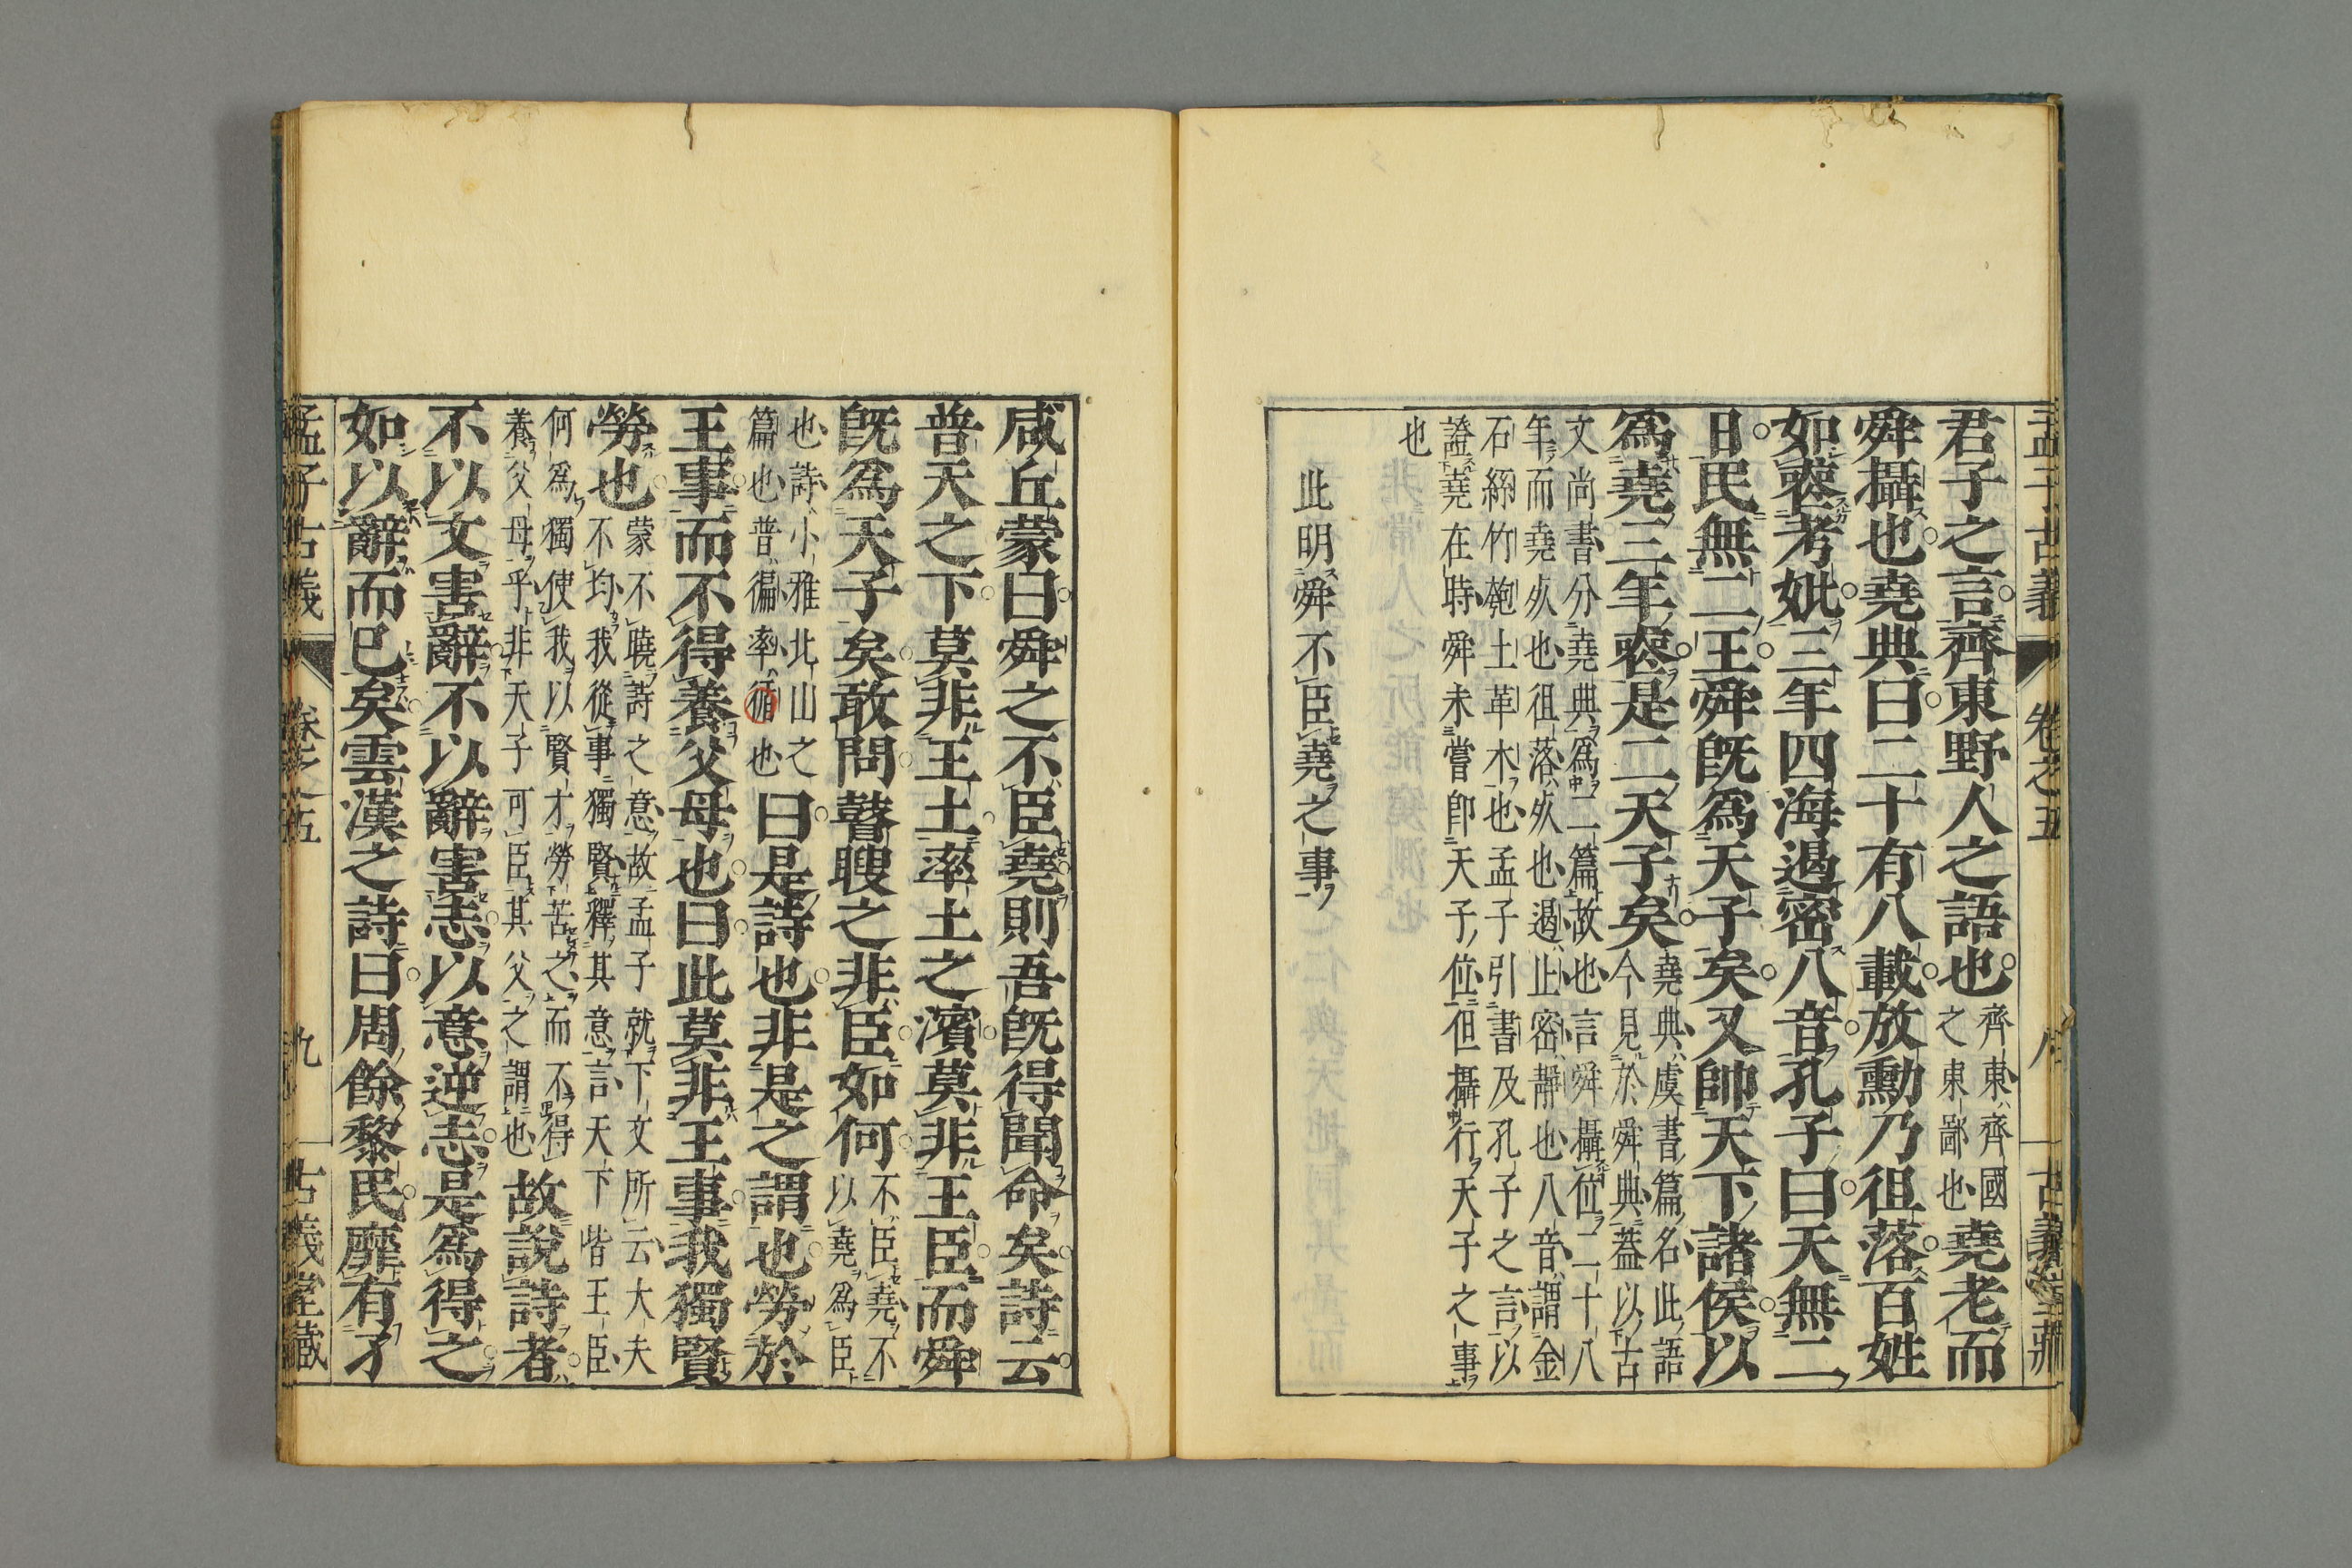 孟子古義 卷之五 八 古義堂藏
君子之言齊東野人之語也齊東齊國之東鄙也堯老而
舜攝也堯典曰二十有八載放勳乃徂落百姓
如喪考妣三年四海遏密八音孔子曰天無二
日民無二王舜既爲天子矣又帥天下諸侯以
爲堯三年喪是二天子矣堯典虞書篇名此語今見於舜典蓋以古
文尚書分堯典爲二篇故也言舜攝位二十八
年而堯死也徂落死也遏止密靜也八音謂金
石絲竹匏土革木也孟子引書及孔子之言以
證堯在時舜未嘗即天子位但攝行天子之事
也
此明舜不臣堯之事
咸丘蒙曰舜之不臣堯則吾既得聞命矣詩云
普天之下莫非王土率土之濱莫非王臣而舜
既爲天子矣敢問瞽瞍之非臣如何不臣堯不以堯爲臣
也詩小雅北山之篇也普徧率循也曰是詩也非是之謂也勞於
王事而不得養父母也曰此莫非王事我獨賢
勞也蒙不曉詩之意故孟子就下文所云大夫不均我從事獨賢釋其意言天下皆王臣
何爲獨使我以賢才勞苦之而不得養父母乎非天子可臣其父之謂也故說詩者
不以文害辭不以辭害志以意逆志是爲得之
如以辭而已矣雲漢之詩曰周餘黎民靡有孑
孟子古義 卷之五 九 古義堂藏